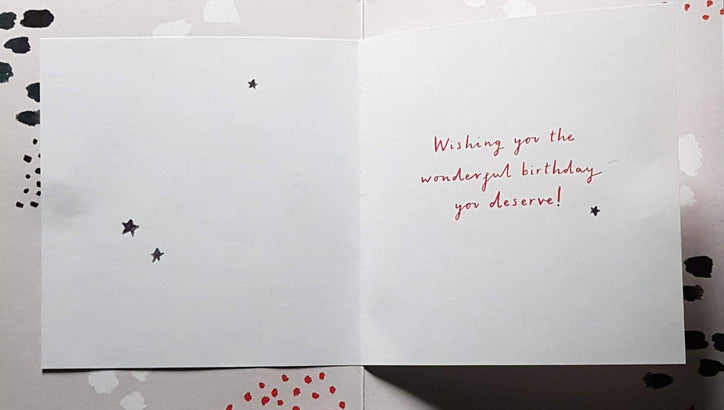 Wishing you the
wonderful birthday
you deserve!